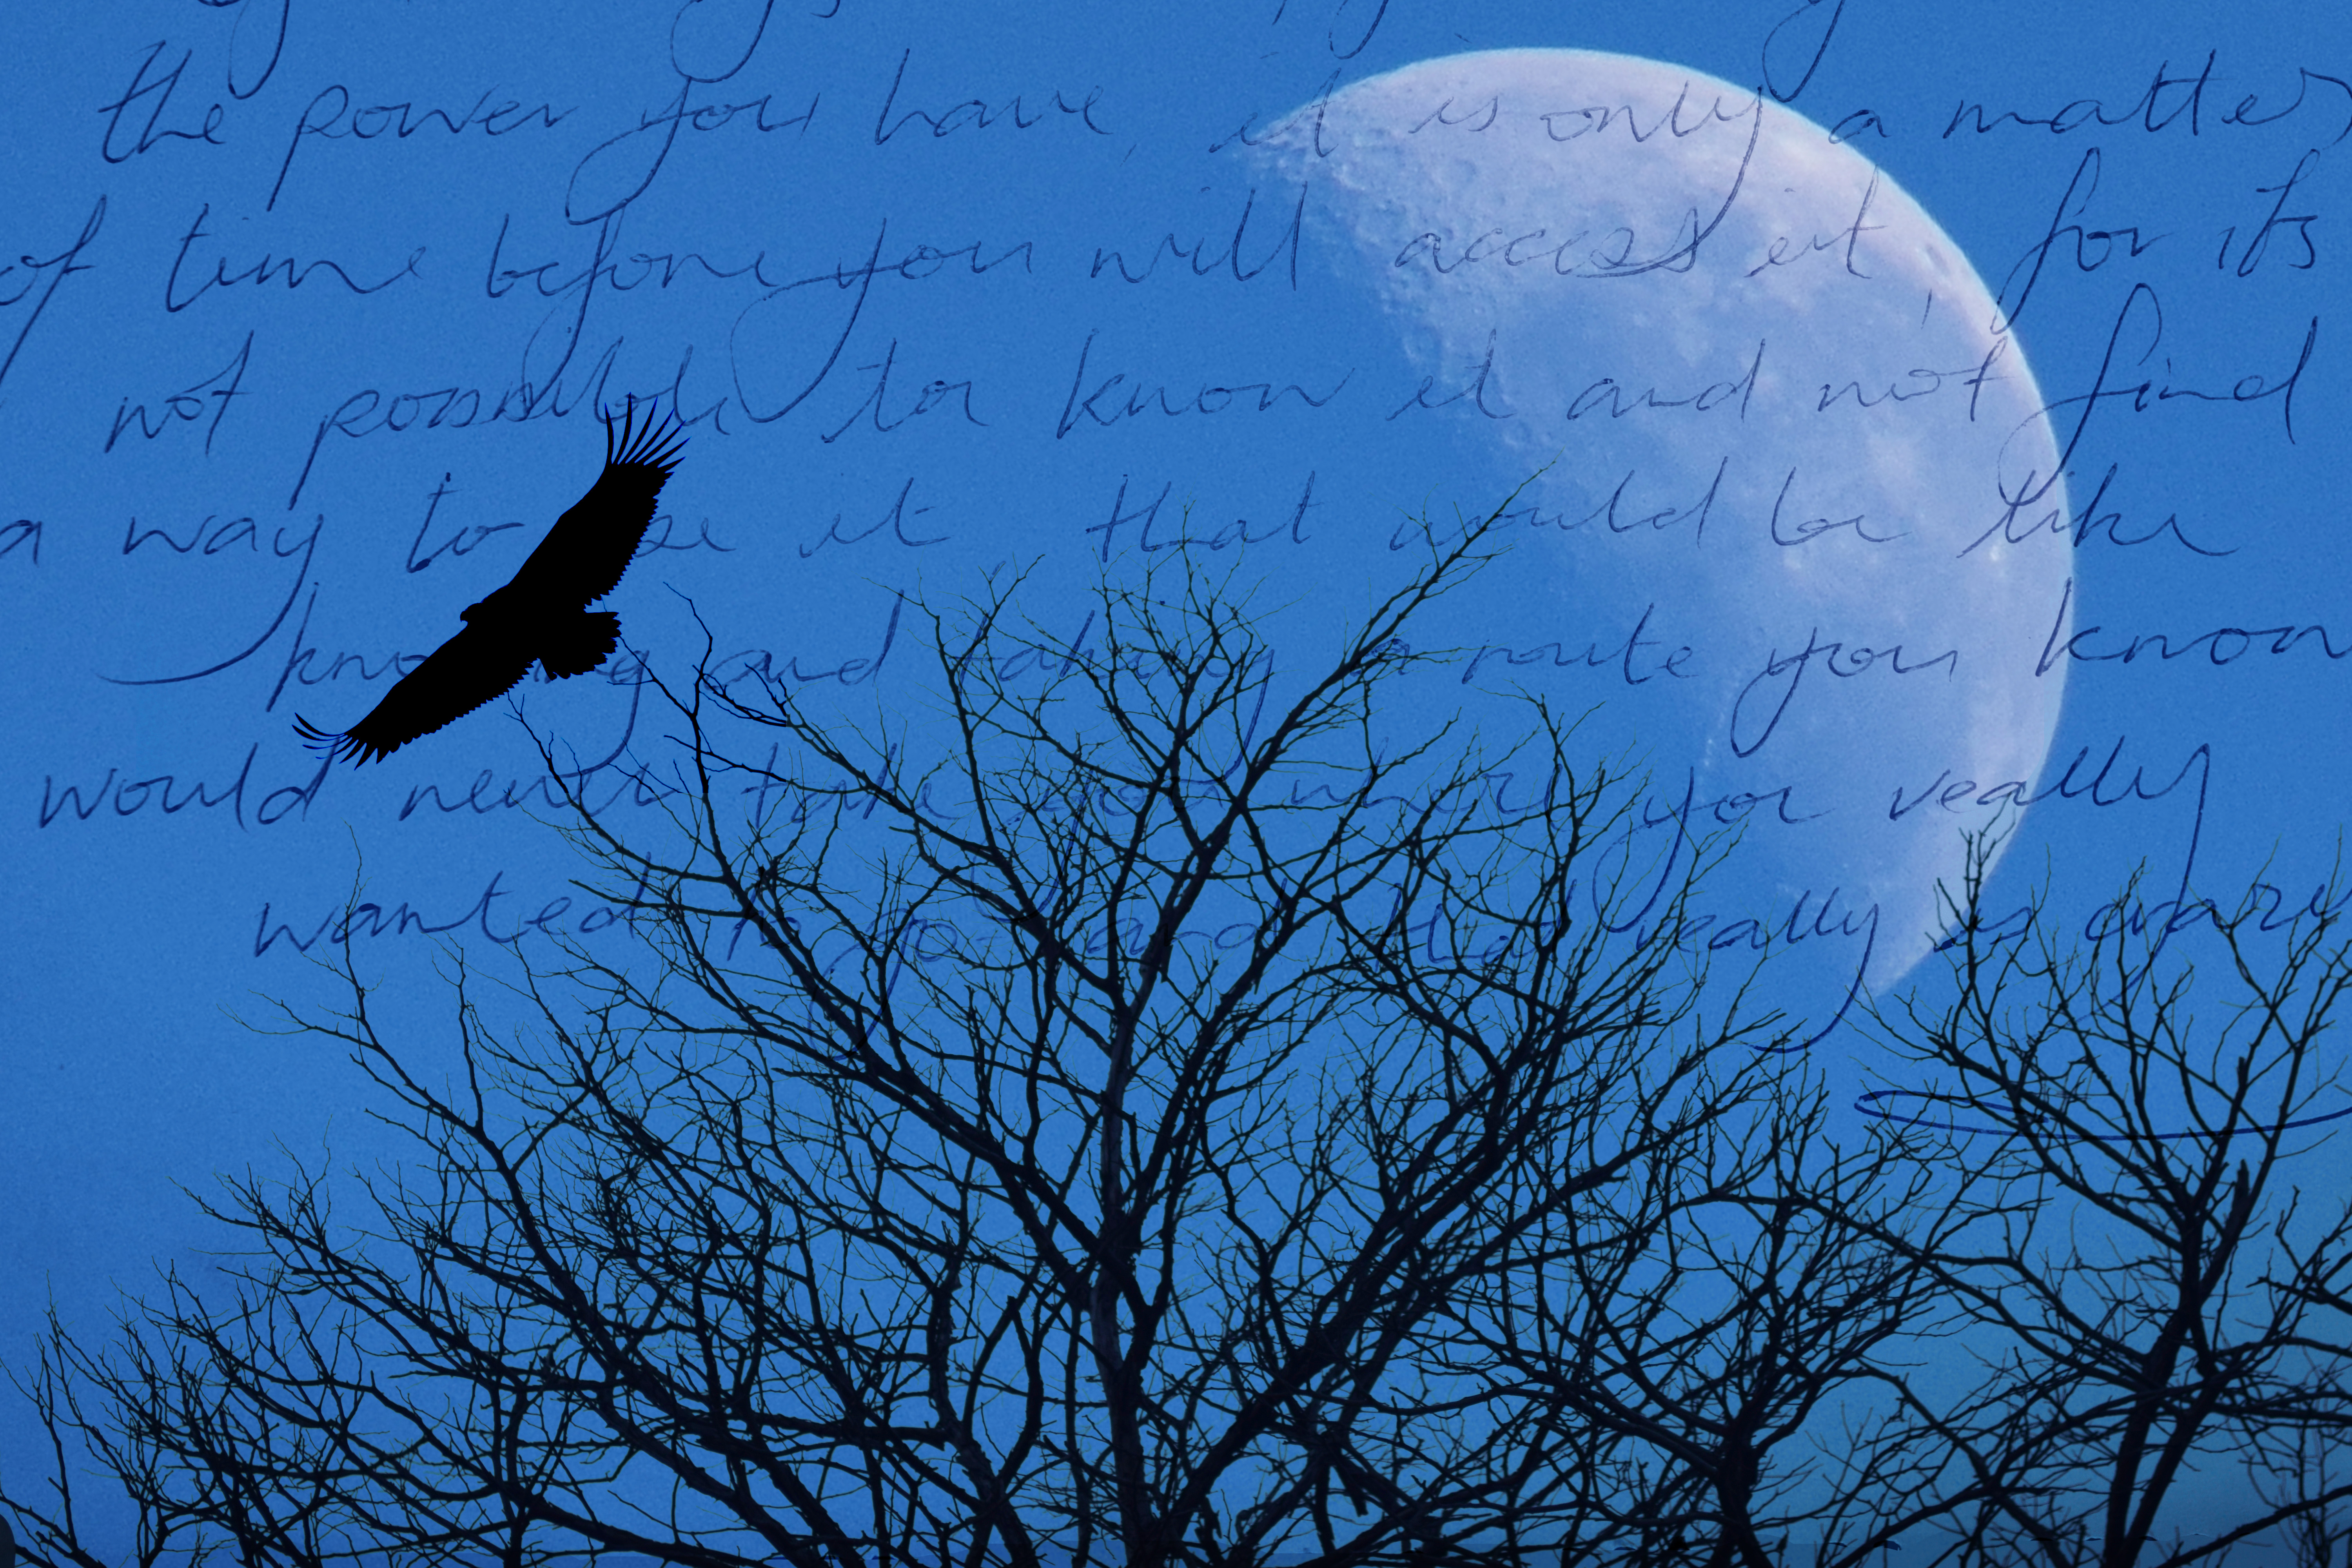 the power you have, it is only a matter
of time before you will access it, for its
not possible to know it and not find
a way to se it, that would be like
knowing and taking a route you know
would never take you where you really
wanted to go and that really is crazy